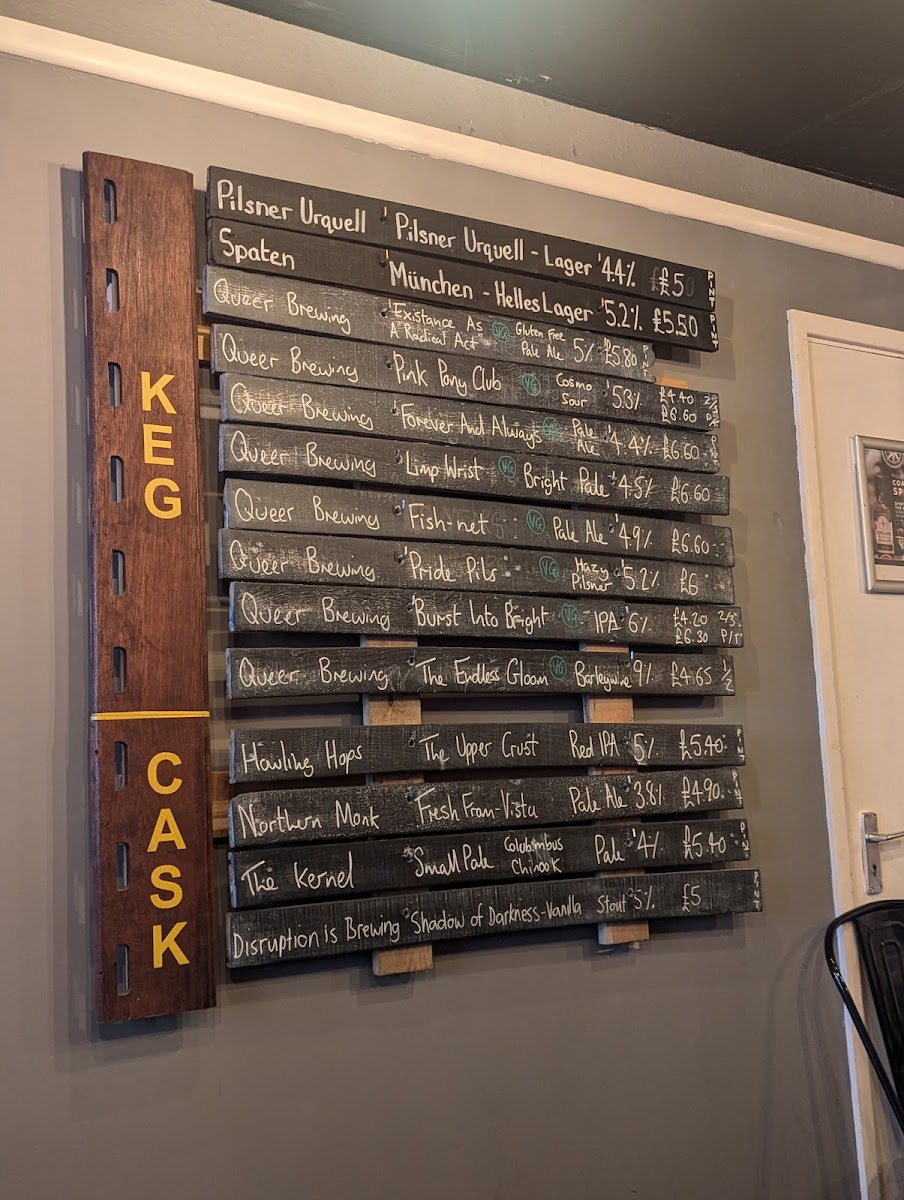 KEG
Pilsner Urquell Pilsner Urquell - Lager 4.4% £5 PINT
Spaten München - Helles Lager 5.2% £5.50 PINT
Queer Brewing Existance As VG Gluten Free
A Radical Act Pale Ale 5% £5.80
Queer Brewing Pink Pony Club VG Cosmo Sour 5.3% £4.40 2/3
£6.60
Queer Brewing Forever And Always VG Pale Ale 4.4% £6.60
Queer Brewing Limp Wrist VG Bright Pale 4.5% £6.60
Queer Brewing Fish-net VG Pale Ale 4.9% £6.60
Queer Brewing Pride Pils VG Hazy Pilsner 5.2% £6
Queer Brewing Burst Into Bright VG IPA 6% £4.20 2/3
£6.30 P/T
Queer Brewing The Endless Gloom VG Barleywine 9% £4.65 1/2
CASK
Howling Hops The Upper Crust Red IPA 5% £5.40 PINT
Northern Monk Fresh From-Vista Pale Ale 3.8% £4.90 PINT
The Kernel Small Pale Colubmbus Chinook Pale 4% £5.40 PINT
Disruption is Brewing Shadow of Darkness-Vanilla Stout 5% £5 PINT